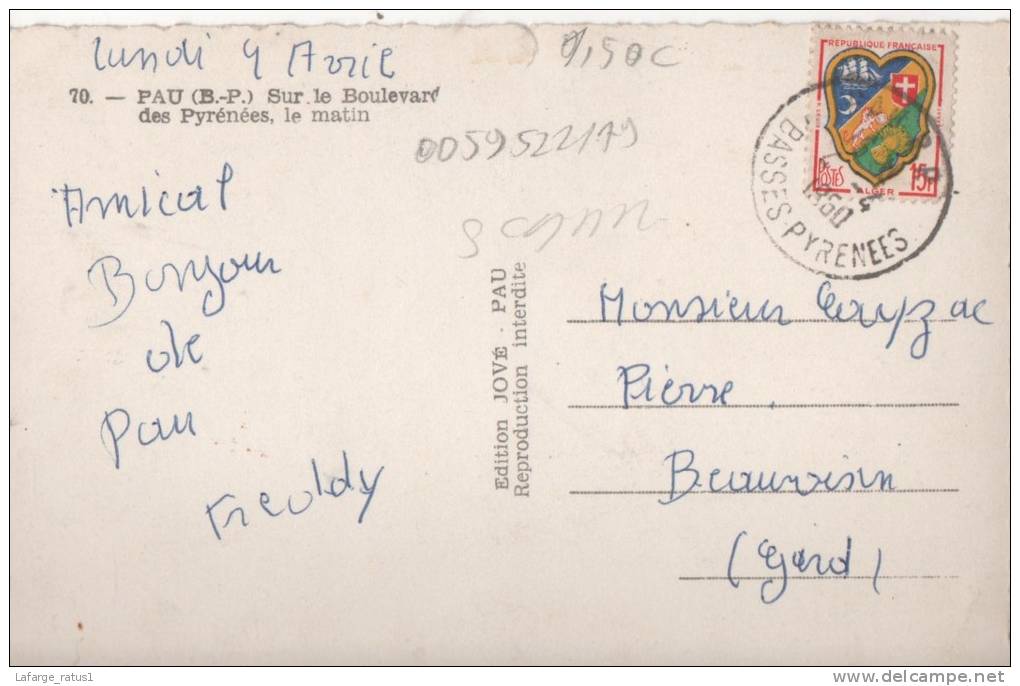 lundi 4 Avril
70. — PAU (B.-P.) Sur le Boulevard
des Pyrénées, le matin
Amical
Bonjour
de
Pau
Freddy
1,50C
0059522179
Edition JOVÉ - PAU
Reproduction interdite
REPUBLIQUE FRANÇAISE
POSTES
ALGER
15F
1960
BASSES-PYRENEES
Monsieur
Pierre
Beauvoisin
(Gard)
Lafarge_ratus1
delcampe.net